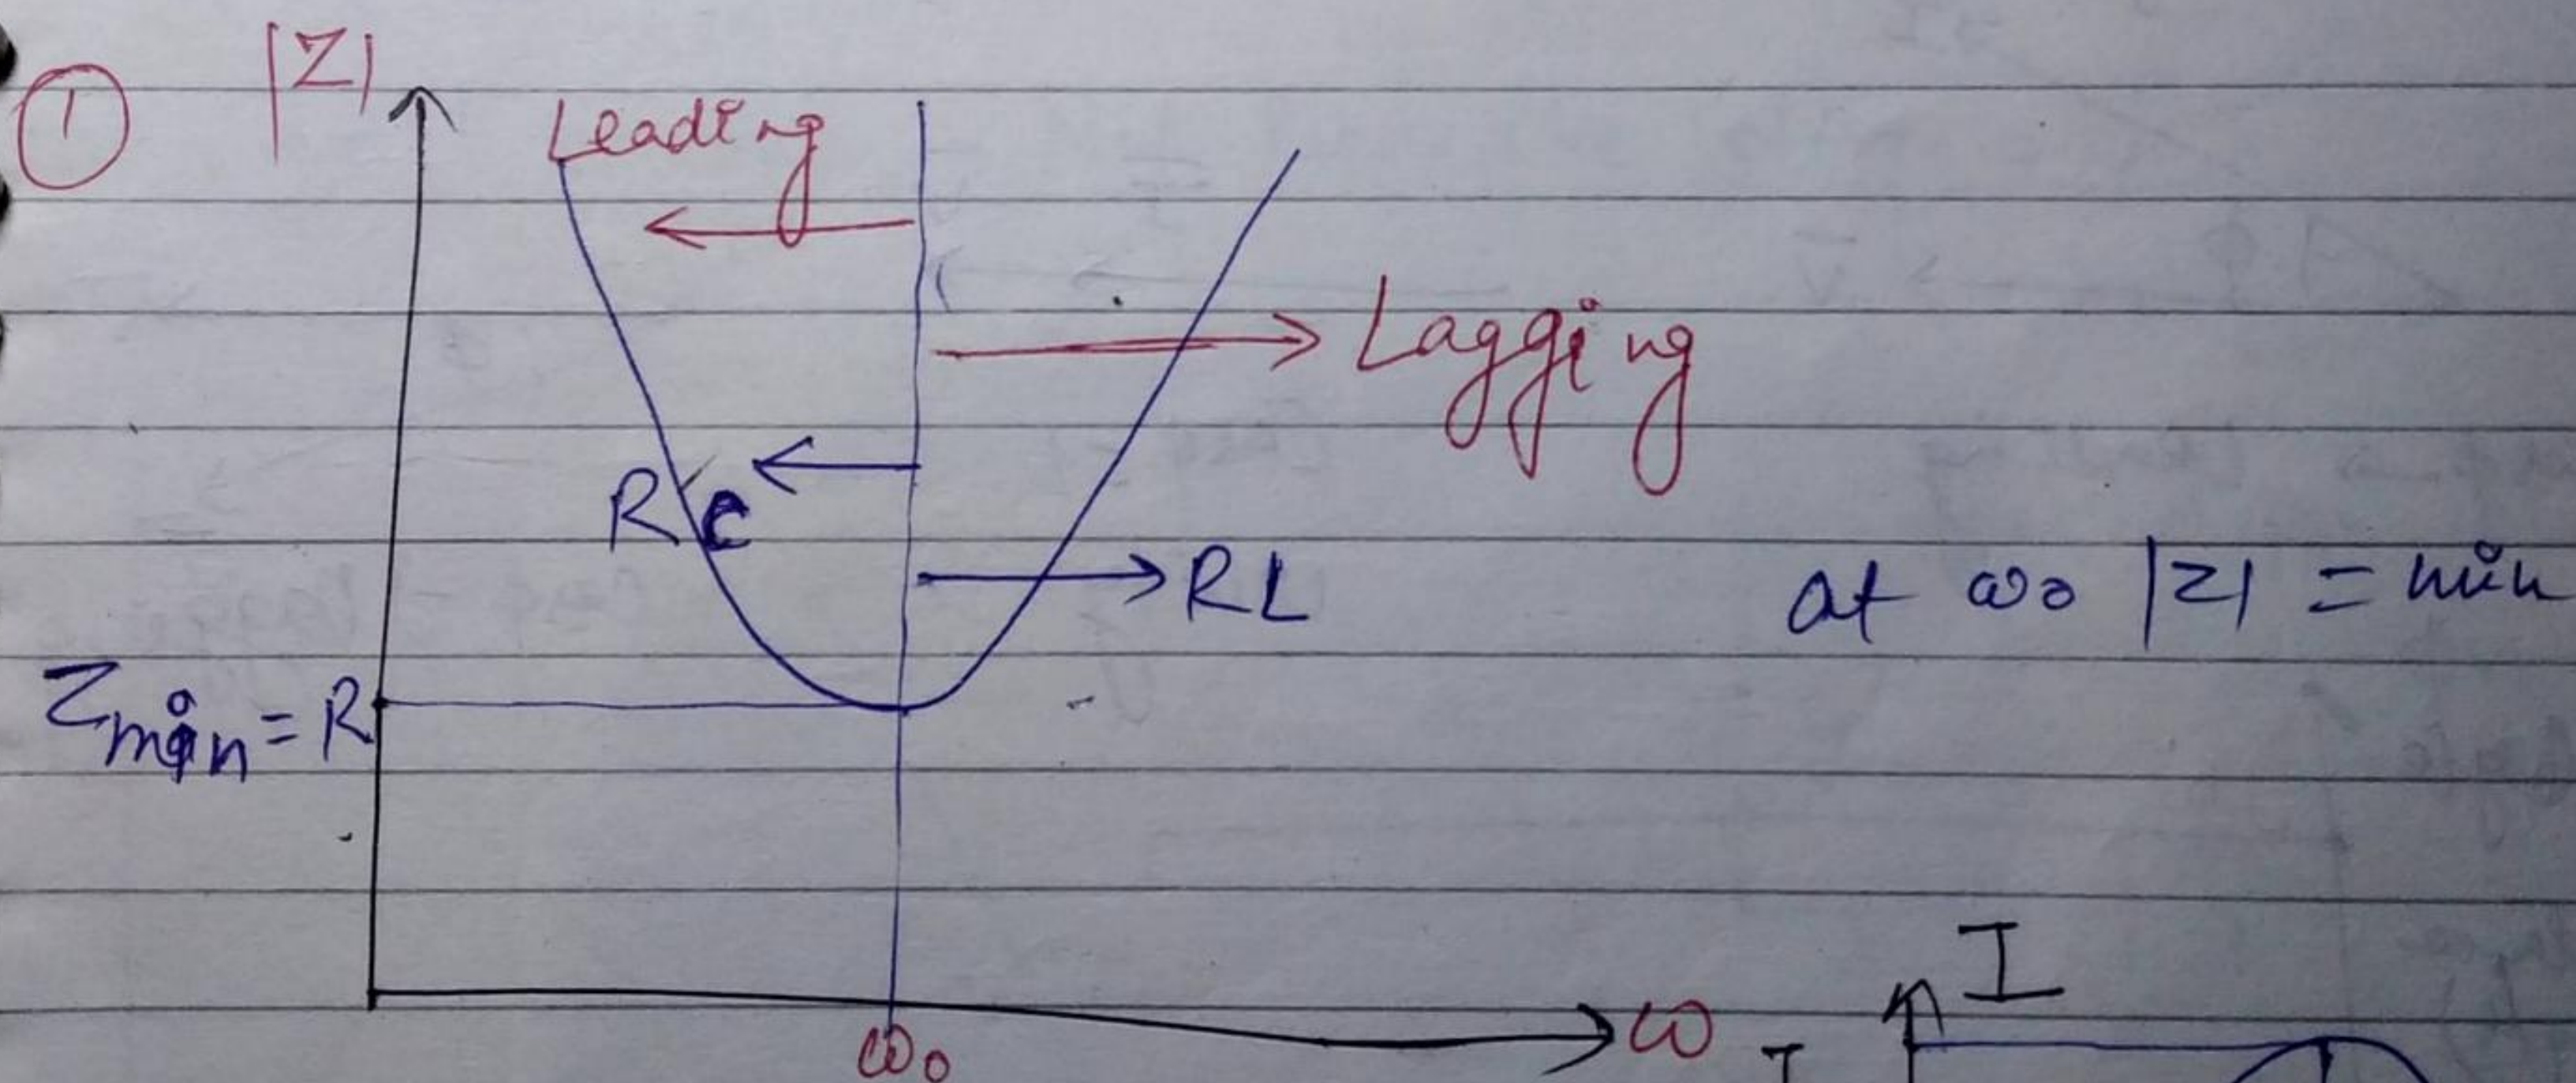 ①
|Z|
Leading
Lagging
RC
RL
at ω₀ |Z| = min
Zmin = R
I
ω₀
ω
I